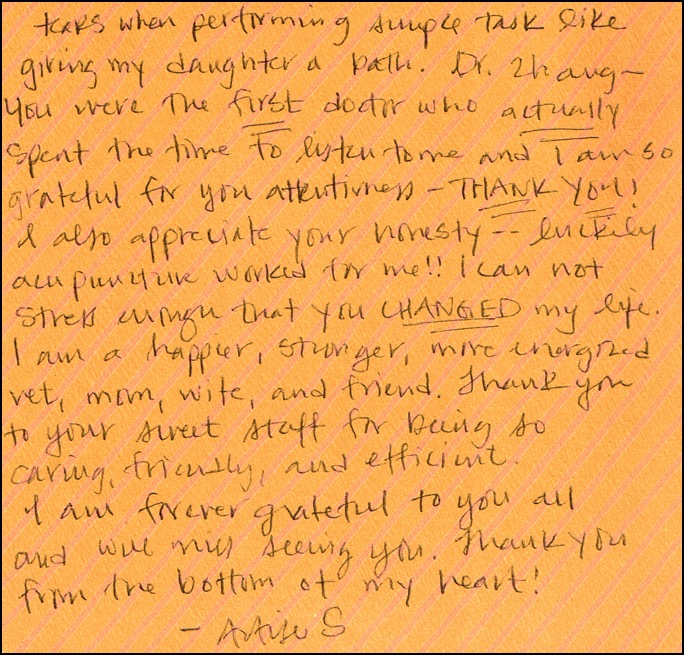 tears when performing simple task like
giving my daughter a bath. Dr. Zhang-
You were the first doctor who actually
spent the time to listen to me and I am so
grateful for you attentivness - THANK YOU!
I also appreciate your honesty -- luckily
acupuncture worked for me!! I can not
stress enough that you CHANGED my life.
I am a happier, stronger, more energized
vet, mom, wife, and friend. Thank you
to your sweet staff for being so
caring, friendly, and efficient.
I am forever grateful to you all
and will miss seeing you. Thank you
from the bottom of my heart!
- S